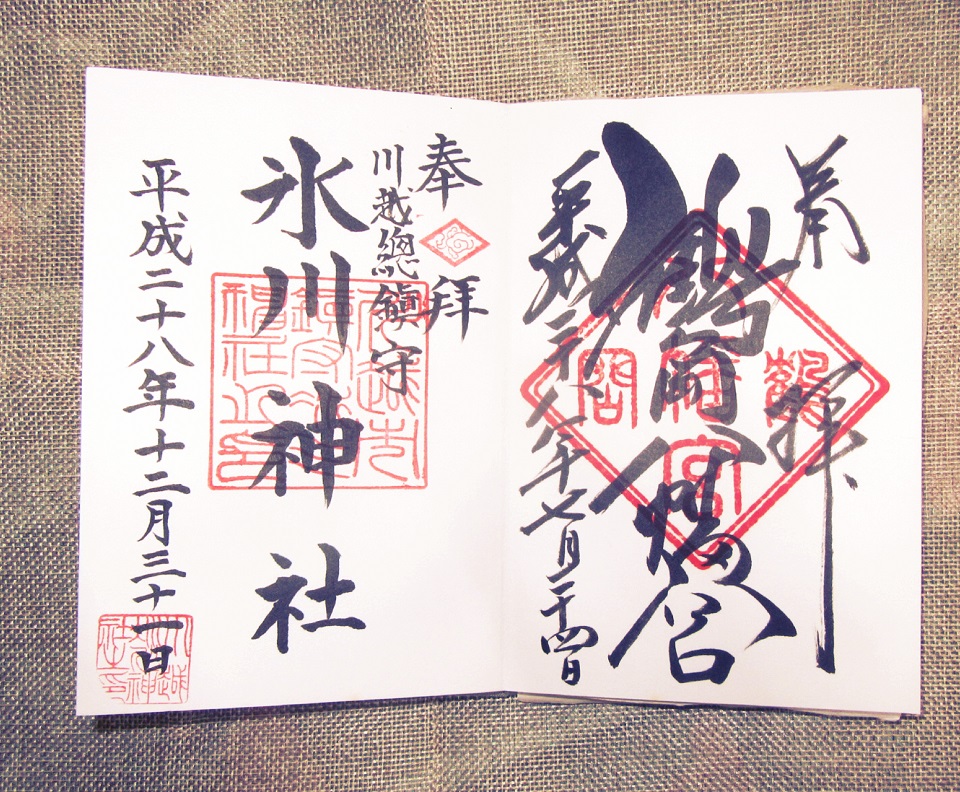 奉拝
鶴岡八幡宮
平成二十八年七月二十四日
奉拝
川越總鎮守
氷川神社
平成二十八年十二月三十一日